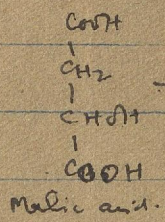 COOH
CH2
CHOH
COOH
Malic acid.